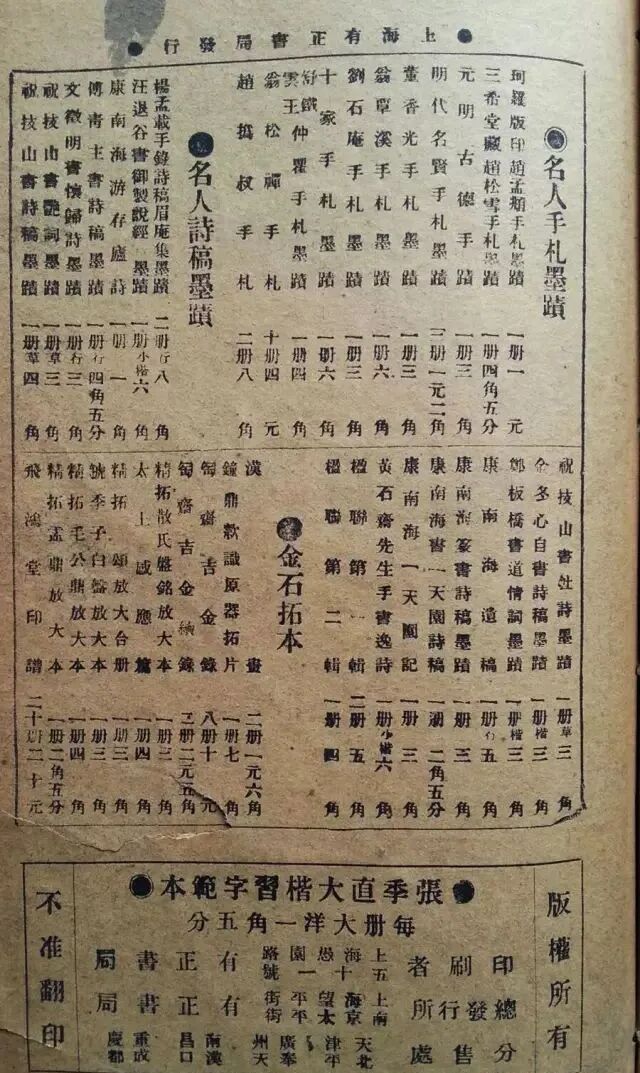 上海有正書局發行
名人手札墨蹟
珂羅版印趙孟頫手札墨蹟 一册一元
三希堂藏趙松雪手札墨蹟 一册四角五分
元明古德手蹟 一册三角
明代名賢手札墨蹟 三册一元二角
董香光手札墨蹟 一册三角
翁覃溪手札墨蹟 一册六角
劉石庵手札墨蹟 一册三角
十家手札墨蹟 一册六角
舒鐵雲王仲瞿手札墨蹟 一册四角
翁松禪手札 十册四元
趙撝叔手札 二册八角
名人詩稿墨蹟
楊孟載手錄詩稿眉庵集墨蹟 二册行八角
汪退谷書御製說經墨蹟 一册小楷六角
康南海游存廬詩 一册一角
傅青主書詩稿墨蹟 一册行四角五分
文徵明書懷歸詩墨蹟 一册行三角
祝技山書艷詞墨蹟 一册草三角
祝技山書詩稿墨蹟 一册草四角
祝技山書杜詩墨蹟 一册草三角
金冬心自書詩稿墨蹟 一册楷三角
鄭板橋書道情詞墨蹟 一册楷三角
康南海遺稿 一册行五角
康南海篆書詩稿墨蹟 一册三角
康南海書一天園詩稿 一册二角五分
康南海一天園記 一册三角
黃石齋先生手書逸詩 一册小楷六角
楹聯第一輯 二册五角
楹聯第二輯 一册四角
金石拓本
漢畫 二册一元六角
鐘鼎欵識原器拓片 一册七角
匋齋吉金錄 八册十元
匋齋吉金續錄 二册二元五角
精拓散氏盤銘放大本 一册三角
太上感應篇 一册四角
精拓頌放大台册 一册三角
虢季子白盤放大本 一册三角
精拓毛公鼎放大本 一册四角
精拓盂鼎放大本 一册二角五分
飛鴻堂印譜 二十册二十元
版權所有
張季直大楷習字範本
每册大洋一角五分
印刷者 上海愚園路五十一號 有正書局
總發行所 上海望平街 南京太平街 有正書局
分售處 天津 北平 廣州 奉天 南昌 漢口 重慶 成都
不准翻印